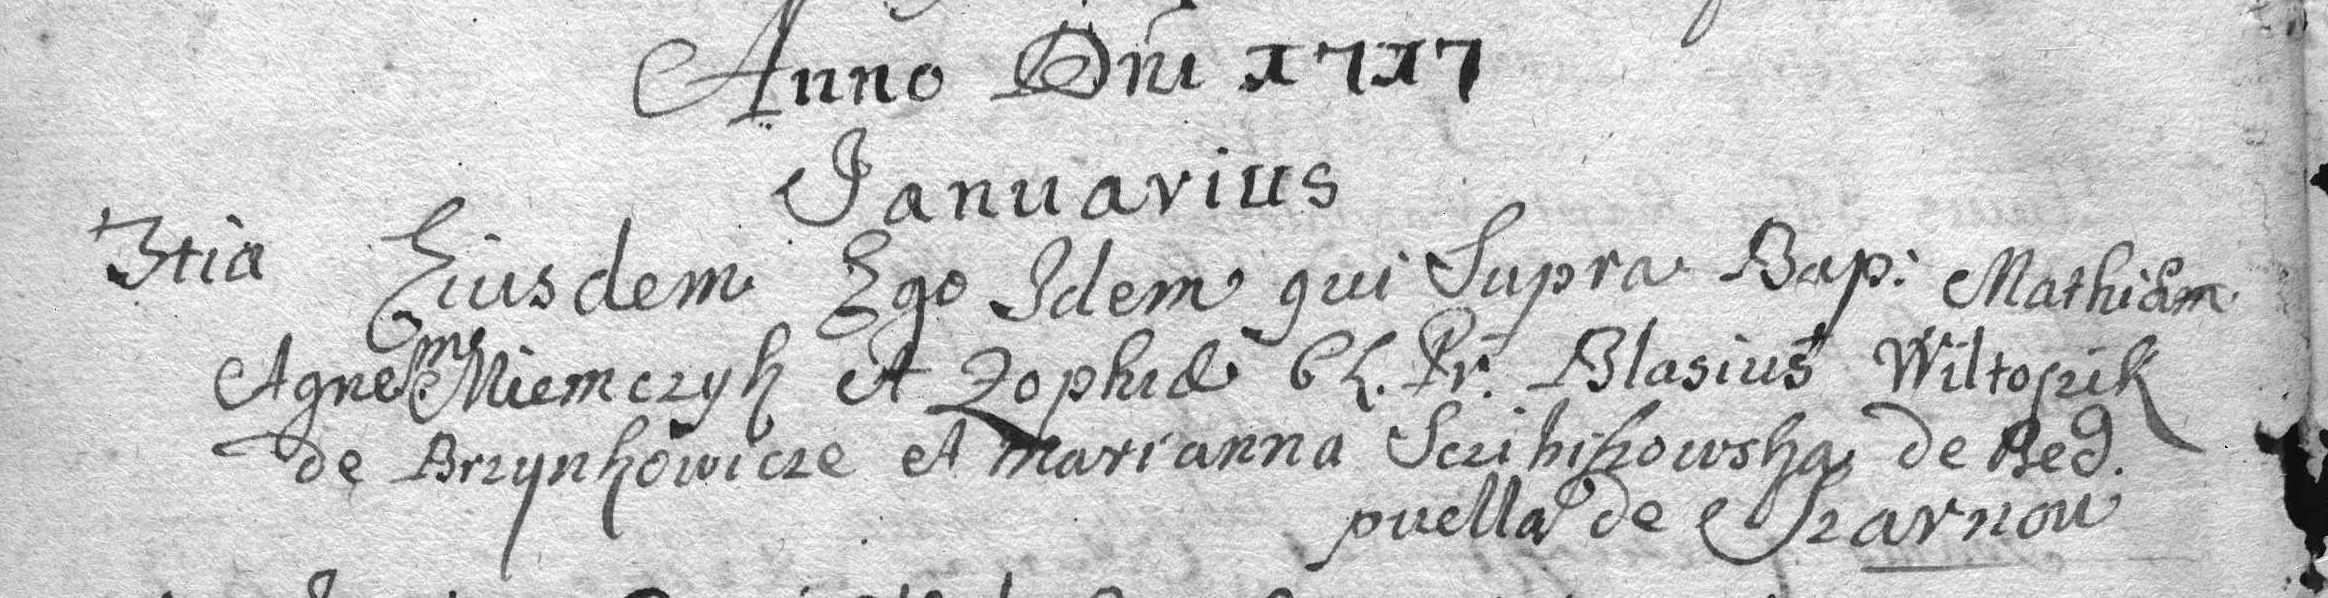 Anno Dñi 1717
Januarius
3tia Eiusdem Ego Idem qui Supra Bap: Mathiam
Miemczyk et Zophiæ CL. Pr. Blasius Wiltoszik
de Brzynkowicze et Marianna de Bed.
puella de Czarnou